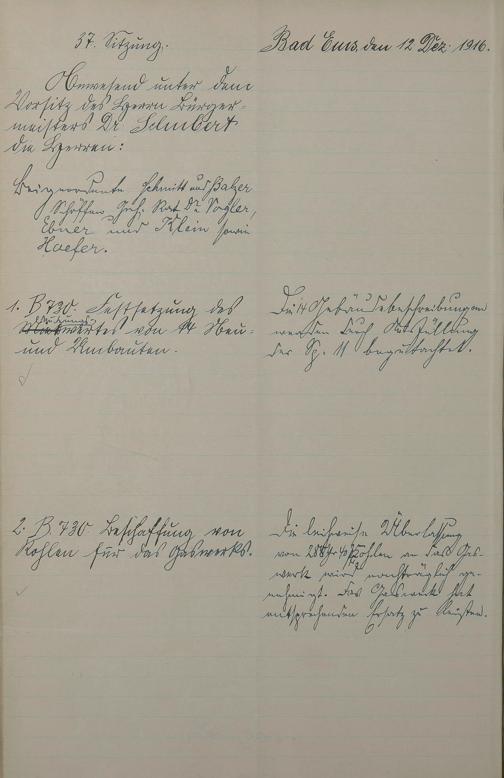 37. Sitzung.
Bad Ems, den 12 Dez. 1916.
Anwesend unter dem
Vorsitz des Herrn Bürger-
meisters Dr. Schubert
die Herren:
Beigeordnete Schmitt und Balzer
Schöffen Geh. Rat Dr. Vogler,
Ebner und Klein sowie
Hoefer.
1. B 730. Festsetzung des
Nutzungswertes von 14 Neu-
und Umbauten.
Die 14 Gebäudebeschreibungen
werden durch Ausfüllung
der Sp. 11 begutachtet.
2. B. 730 Beschaffung von
Kohlen für das Gaswerks.
Die leihweise Überlassung
von Kohlen an das Gas-
werk wird nachträglich ge-
nehmigt. Das Gaswerk hat
entsprechenden Ersatz zu leisten.